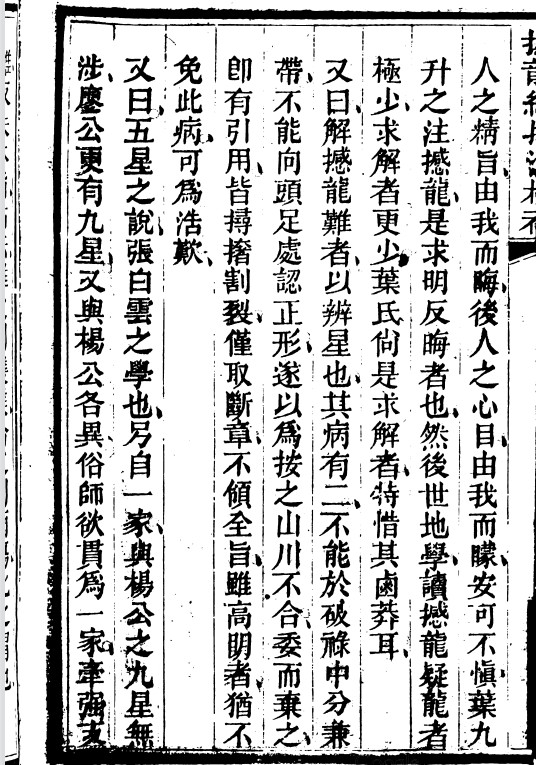 人之精旨由我而晦後人之心目由我而矇安可不愼葉九
升之注撼龍是求明反晦者也然後世地學讀撼龍疑龍者
極少求解者更少葉氏尙是求解者特惜其鹵莽耳
又曰解撼龍難者以辨星也其病有二不能於破祿中分兼
帶不能向頭足處認正形遂以爲按之山川不合委而棄之
卽有引用皆撏撦割裂僅取斷章不傾全旨雖高明者猶不
免此病可爲浩歎
又曰五星之說張白雲之學也另自一家與楊公之九星無
涉廖公更有九星又與楊公各異俗師欲貫爲一家牽强支